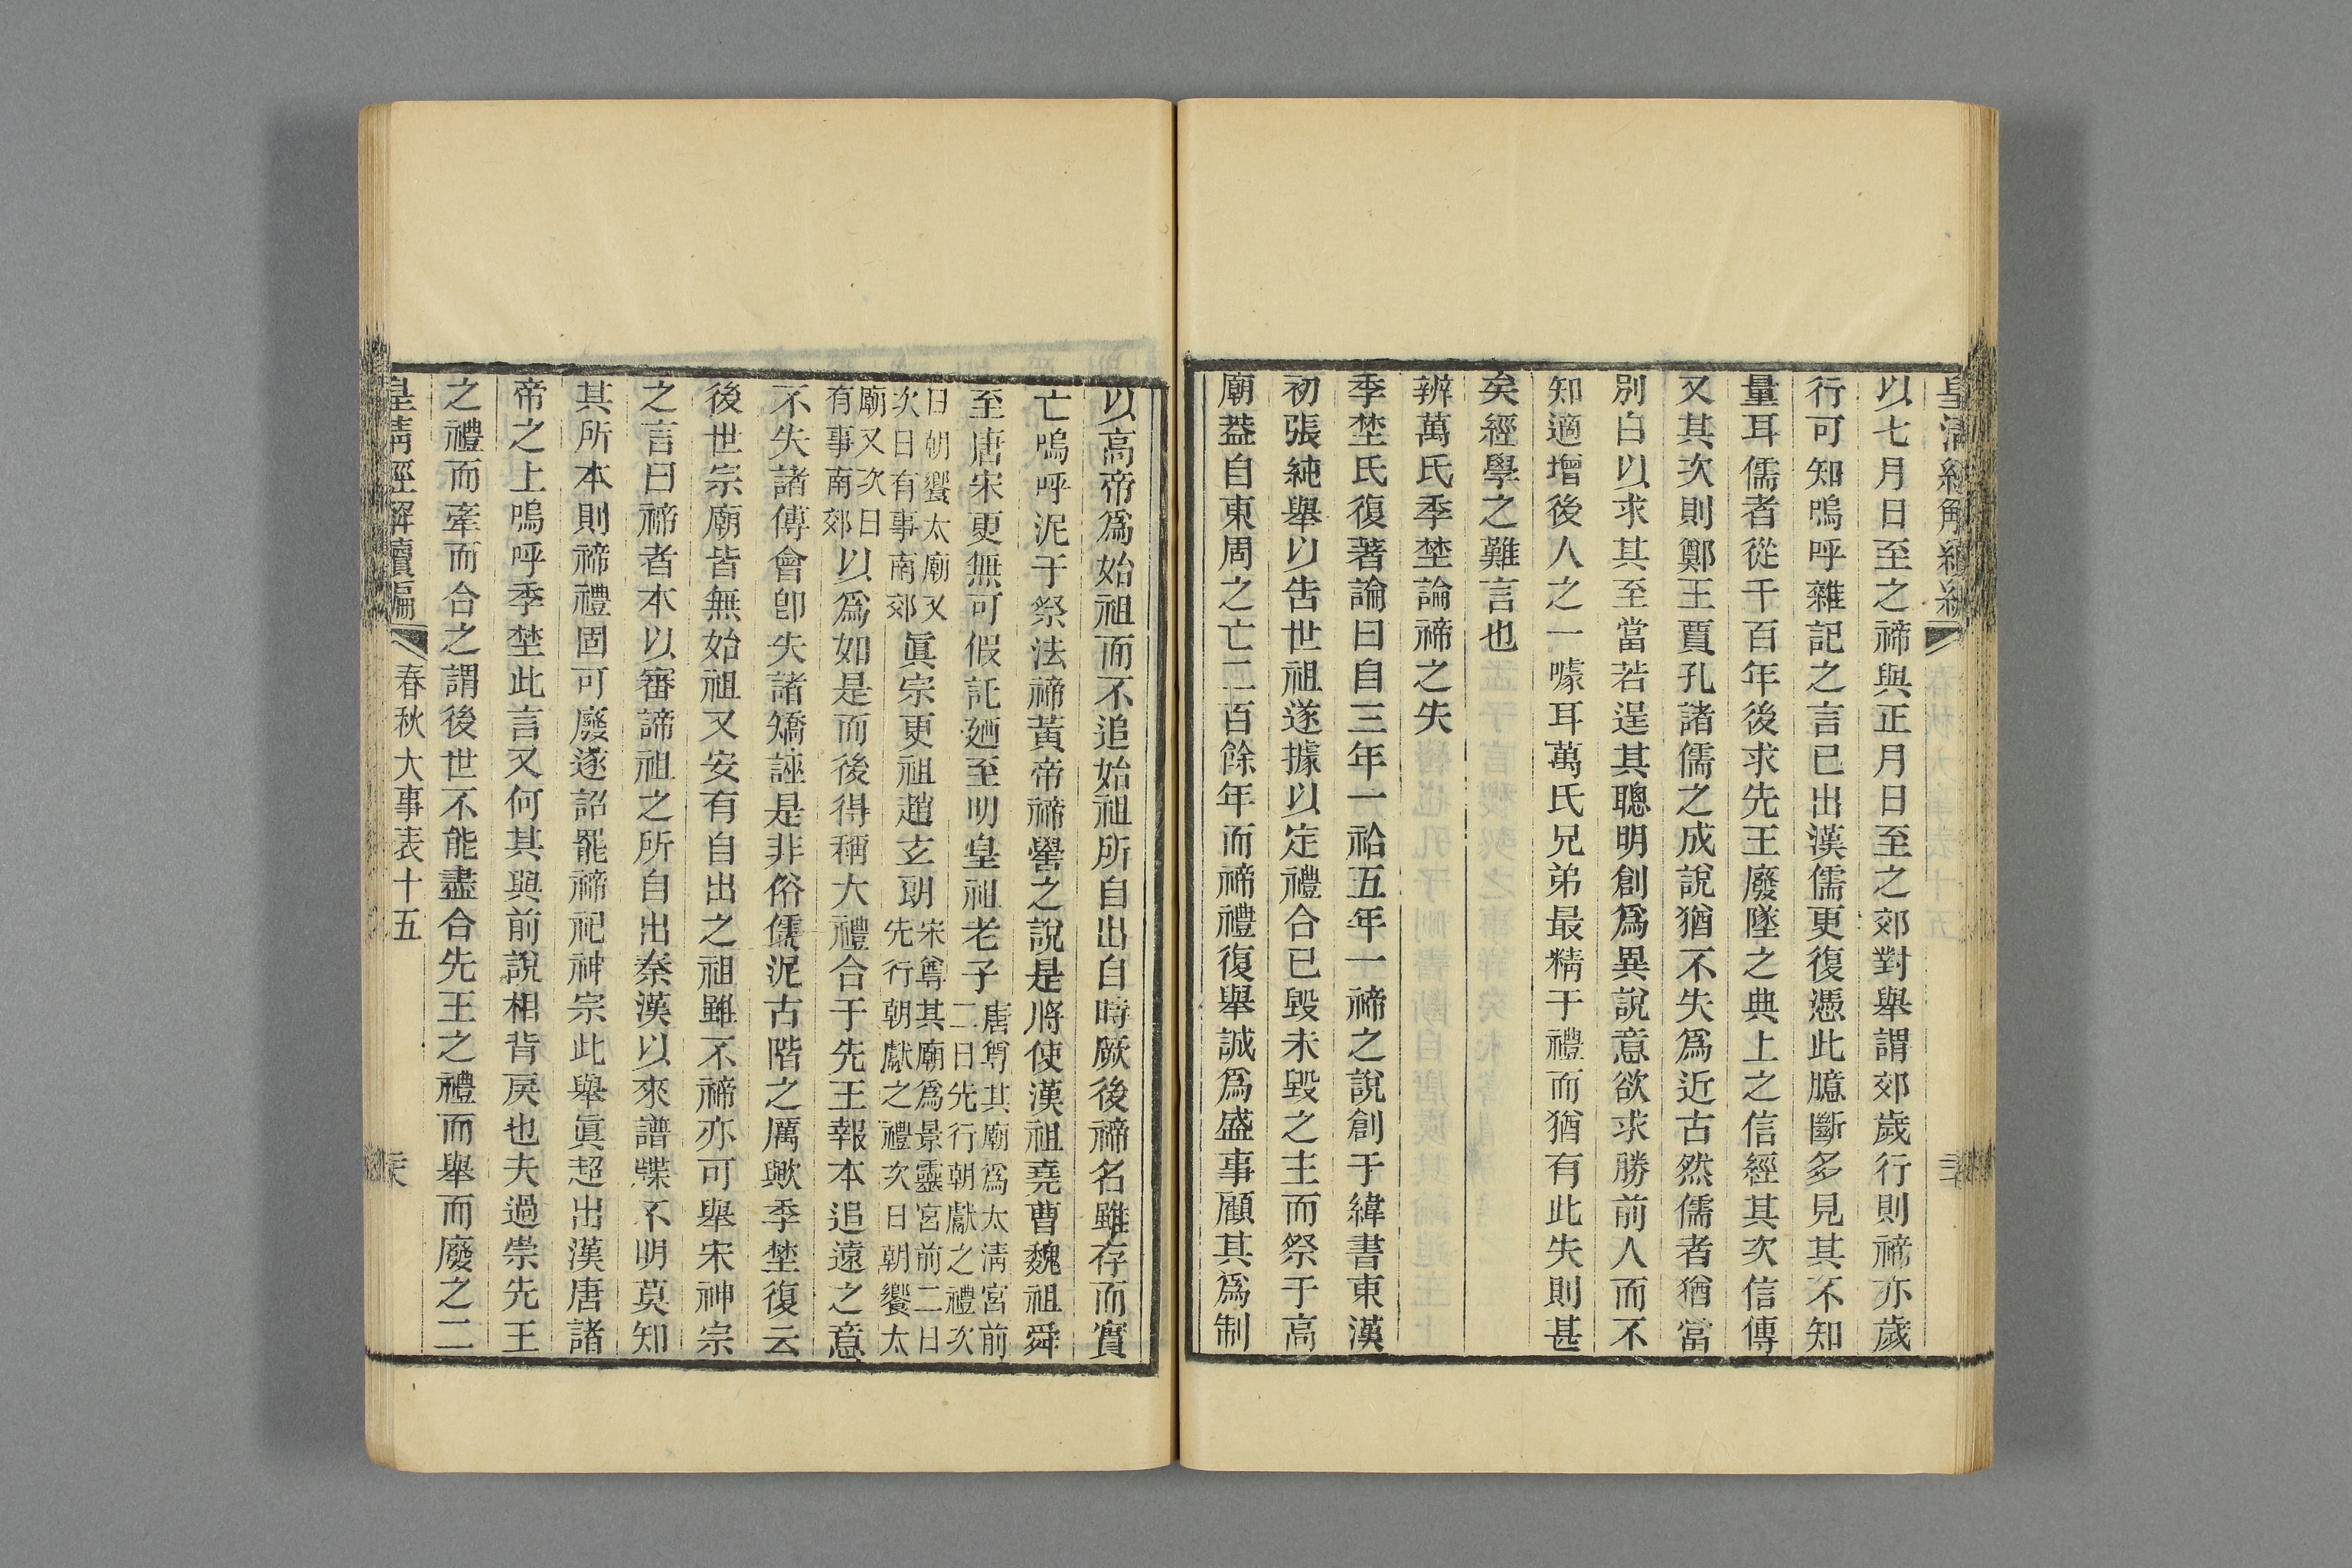 以七月日至之禘與正月日至之郊對舉謂郊歲行則禘亦歲
行可知嗚呼雜記之言已出漢儒更復憑此臆斷多見其不知
量耳儒者從千百年後求先王廢墜之典上之信經其次信傳
又其次則鄭王賈孔諸儒之成說猶不失爲近古然儒者猶當
別白以求其至當若逞其聰明創爲異說意欲求勝前人而不
知適增後人之一噱耳萬氏兄弟最精于禮而猶有此失則甚
矣經學之難言也
辨萬氏季埜論禘之失
季埜氏復著論曰自三年一祫五年一禘之說創于緯書東漢
初張純舉以告世祖遂據以定禮合已毀未毀之主而祭于高
廟葢自東周之亡二百餘年而禘禮復舉誠爲盛事顧其爲制
以高帝爲始祖而不追始祖所自出自時厥後禘名雖存而實
亡嗚呼泥于祭法禘黃帝禘嚳之說是將使漢祖堯曹魏祖舜
至唐宋更無可假託廼至明皇祖老子唐尊其廟爲太淸宮前二日先行朝獻之禮次
日朝饗太廟又次日有事南郊眞宗更祖趙玄朗宋尊其廟爲景靈宮前二日先行朝獻之禮次日朝饗太
廟又次日有事南郊以爲如是而後得稱大禮合于先王報本追遠之意
不失諸傅會卽失諸矯誣是非俗儒泥古階之厲歟季埜復云
後世宗廟皆無始祖又安有自出之祖雖不禘亦可舉宋神宗
之言曰禘者本以審諦祖之所自出秦漢以來譜牒不明莫知
其所本則禘禮固可廢遂詔罷禘祀神宗此舉眞超出漢唐諸
帝之上嗚呼季埜此言又何其與前說相背戾也夫過崇先王
之禮而牽而合之謂後世不能盡合先王之禮而舉而廢之二
皇淸經解續編
春秋大事表十五